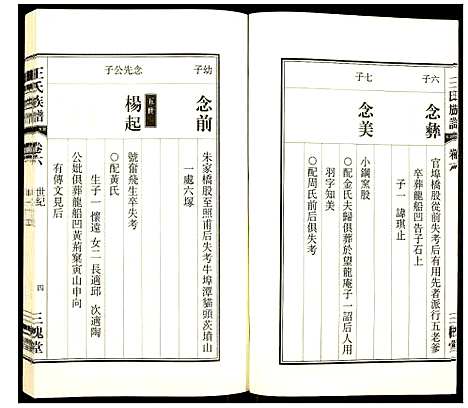 王氏族譜 卷六
六子
念彝
官埠橋股從前失考后有用先者派行五老爹
卒葬龍船凹告子石上
子一 諱琪止
七子
念美
小鋼窯股
○配金氏夫歸俱葬於望龍庵子一諒后人用
羽字知美
○配周氏前后俱失考
幼子
念前
朱家橋股至照甫后失考牛埠潭貓頭茨墳山
一處六塚
念先公子
五世
楊起
號奮飛生卒失考
○配黃氏
生子一 懷遠 女二 長適邱 次適陶
公妣俱葬龍船凹黃荊窠寅山申向
有傳文見后
王氏族譜
卷六
世紀
四
三槐堂